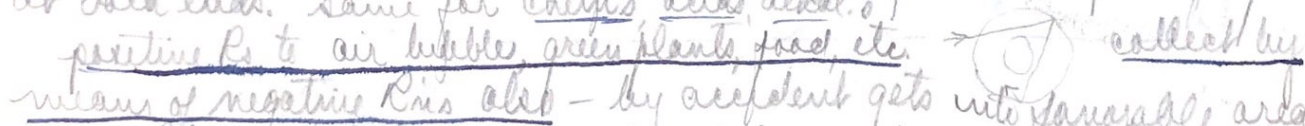 at used ends. Same for
positive Rs to air bubble, green plants, food, etc. collect by
means of negative Rns also – by accident gets into favorable area